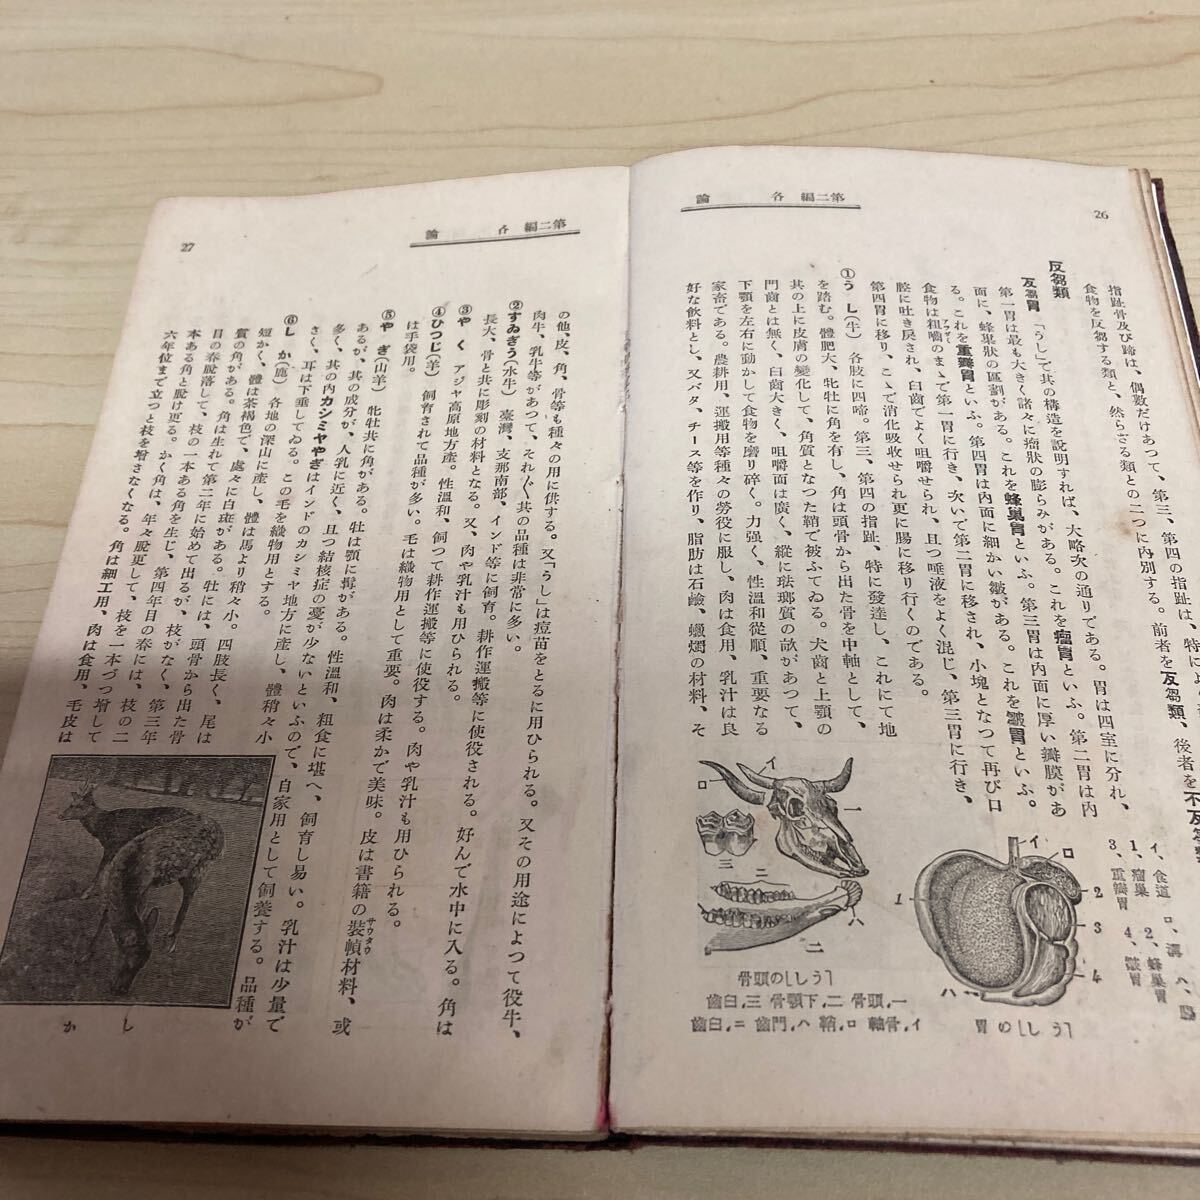 第二編 各論
26
指趾骨及び蹄は、偶數だけあつて、第三、第四の指趾は、特に
食物を反芻する類と、然らざる類との二つに内別する。前者を反芻類、後者を不反芻類
反芻類
反芻胃 「うし」で其の構造を説明すれば、大略次の通りである。胃は四室に分れ、
第一胃は最も大きく諸々に瘤狀の膨らみがある。これを瘤胃といふ。第二胃は内
面に、蜂巢狀の區劃がある。これを蜂巢胃といふ。第三胃は内面に厚い瓣膜があ
る。これを重瓣胃といふ。第四胃は内面に細かい皺がある。これを皺胃といふ。
食物は粗嚼のまゝで第一胃に行き、次いで第二胃に移され、小塊となつて再び口
腔に吐き戻され、臼齒でよく咀嚼せられ、且つ唾液をよく混じ、第三胃に行き、
第四胃に移り、こゝで消化吸收せられ更に腸に移り行くのである。
①うし(牛) 各肢に四蹄。第三、第四の指趾、特に發達し、これにて地
を踏む。體肥大、牝牡に角を有し、角は頭骨から出た骨を中軸として、
其の上に皮膚の變化して、角質となつた鞘で被ふてゐる。犬齒と上顎の
門齒とは無く、臼齒大きく、咀嚼面は廣く、縱に琺瑯質の畝があつて、
下顎を左右に動かして食物を磨り碎く。力强く、性溫和從順、重要なる
家畜である。農耕用、運搬用等種々の勞役に服し、肉は食用、乳汁は良
好な飲料とし、又バタ、チース等を作り、脂肪は石鹼、蠟燭の材料、そ
イ、食道 ロ、溝 ハ、腸
1、瘤巢 2、蜂巢胃
3、重瓣胃 4、皺胃
イ
ロ
1
2
3
4
ハ
「うし」の胃
イ
ロ
一
三
ニ
ハ
二
「うし」の頭骨
一、頭骨 二、下顎骨 三、臼齒
イ、骨軸 ロ、鞘 ハ、門齒 ニ、臼齒
第二編 各論
27
の他、皮、角、骨等も種々の用に供する。又「うし」は痘苗をとるに用ひられる。又その用途によつて役牛、
肉牛、乳牛等があつて、それ〲其の品種は非常に多い。
②すゐぎう(水牛) 臺灣、支那南部、インド等に飼育。耕作運搬等に使役される。好んで水中に入る。角は
長大、骨と共に彫刻の材料となる。又、肉や乳汁も用ひられる。
③やく アジヤ高原地方產。性溫和、飼つて耕作運搬等に使役する。肉や乳汁も用ひられる。
④ひつじ(羊) 飼育されて品種が多い。毛は織物用として重要。肉は柔かで美味。皮は書籍の裝幀材料、或
は手袋用。
⑤やぎ(山羊) 牝牡共に角がある。牡は顎に髯がある。性溫和、粗食に堪へ、飼育し易い。乳汁は少量で
あるが、其の成分が、人乳に近く、且つ結核症の憂が少ないといふので、自家用として飼養する。品種が
多く、其の内カシミヤやぎはインドのカシミヤ地方に產し、體稍々小
さく、耳は下垂してゐる。この毛を織物用とする。
⑥しか(鹿) 各地の深山に產し、體は馬より稍々小。四肢長く、尾は
短かく、體は茶褐色で、處々に白斑がある。牡には、頭骨から出た骨
質の角がある。角は生れて第二年に始めて出るが、枝がなく、第三年
目の春脫落して、枝の一本ある角を生じ、第四年目の春には、枝の二
本ある角と脫け更る。かく角は、年々脫更して、枝を一本づつ增して
六年位まで立つと枝を增さなくなる。角は細工用、肉は食用、毛皮は
しか